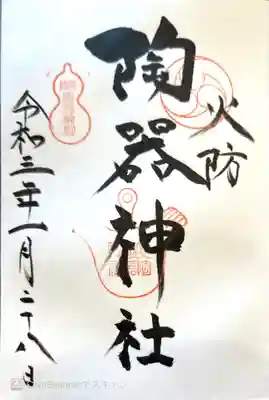 火防
陶器神社
令和三年一月二十八日
CamScannerでスキャン